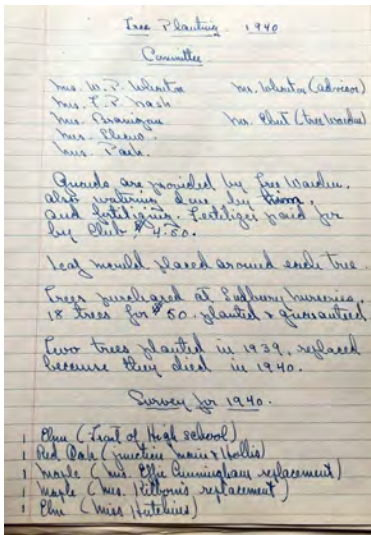 Tree Planting. 1940
Committee
Mrs. W. P. Wharton Mr. Wharton (advisor)
Mrs. F. P. Nash
Mrs. Brannigan Mr. (tree warden)
Mrs.
Mrs. Park.
Guards are provided by Tree Warden,
also watering done by him,
and fertilizing. Fertilizer paid for
by Club $4.50.
Leaf mould placed around each tree.
Trees purchased at Sudbury Nurseries,
18 trees for $50. planted & guaranteed
Two trees planted in 1939, replaced
because they died in 1940.
Survey for 1940.
1 Elm (Front of High school)
1 Red Oak (junction Main & Hollis)
1 Maple (Mrs. Effie Cunningham replacement)
1 Maple (Mrs. Kilborn's replacement)
1 Elm (Miss Hutchins)